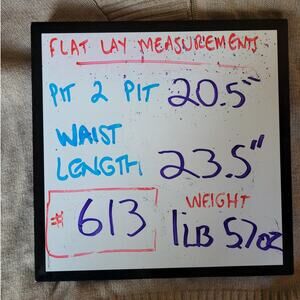 FLAT LAY MEASUREMENTS
PIT 2 PIT 20.5"
WAIST
LENGTH 23.5"
# 613
WEIGHT
1LB 5.7oz